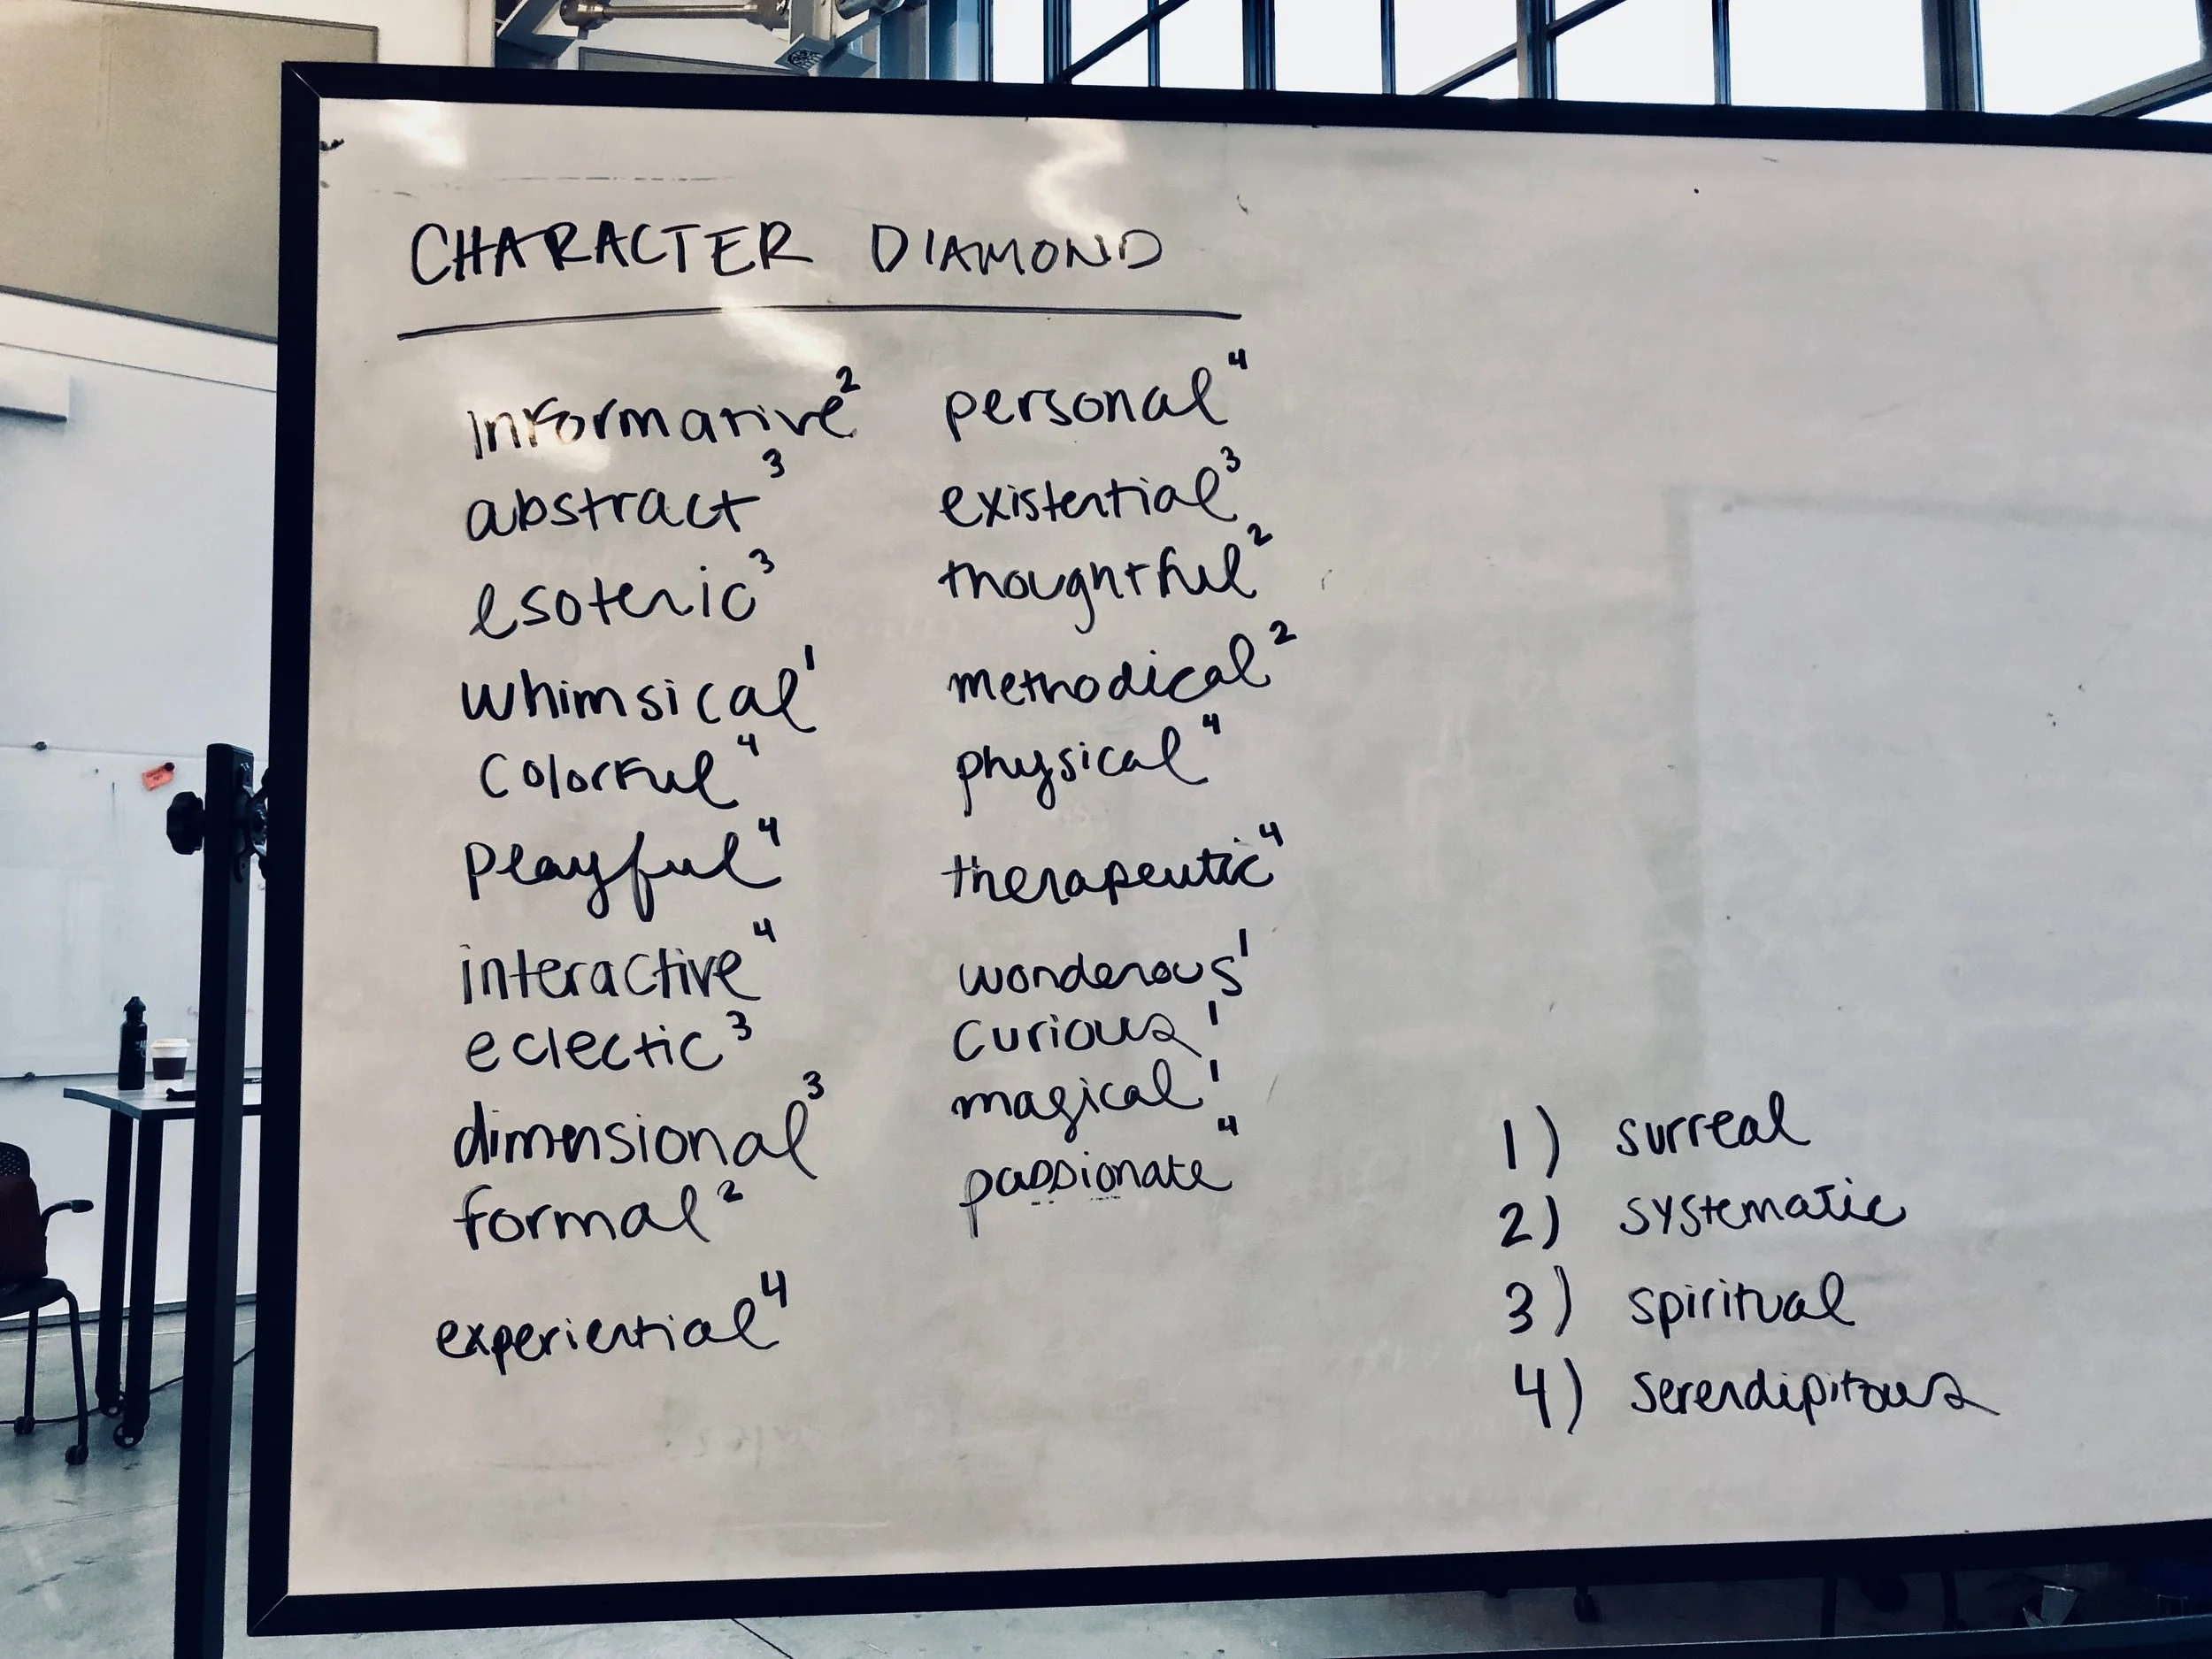 CHARACTER DIAMOND
informative²
abstract³
esoteric³
whimsical¹
colorful⁴
playful⁴
interactive⁴
eclectic³
dimensional³
formal²
experiential⁴
personal⁴
existential³
thoughtful²
methodical²
physical⁴
therapeutic⁴
wonderous¹
curious¹
magical¹
passionate⁴
1) surreal
2) systematic
3) spiritual
4) serendipitous